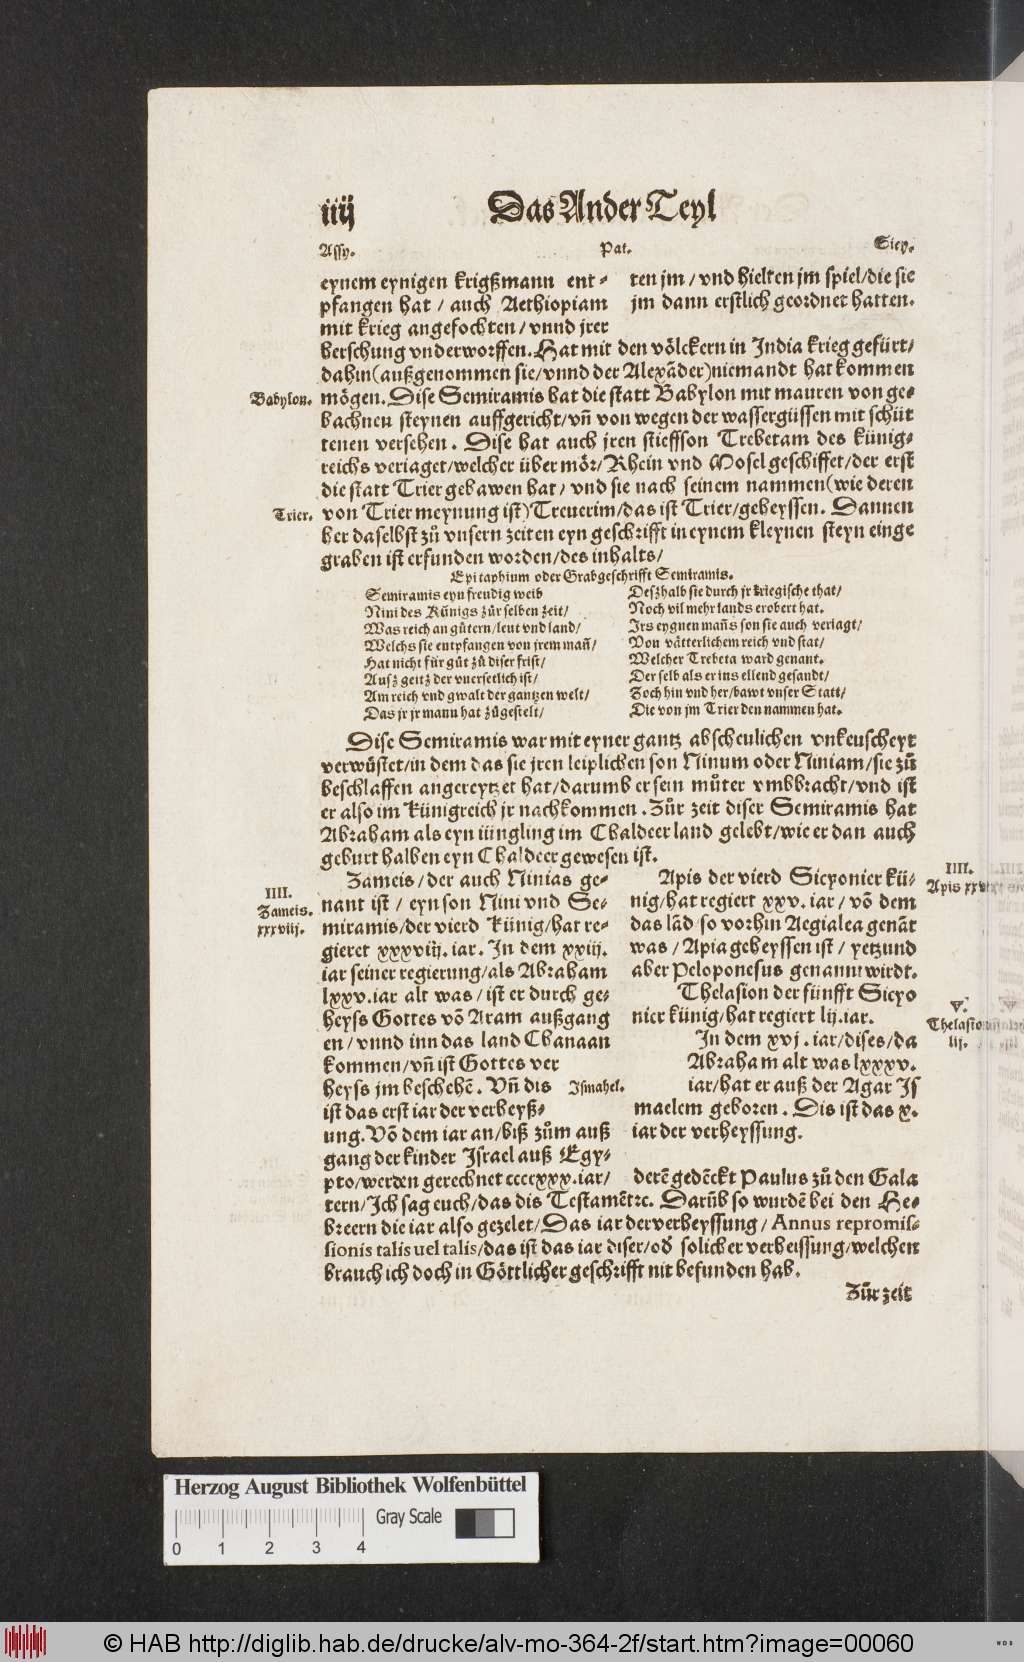 iiij Das Ander Teyl
Assy. Pat. Sicy.
eynem eynigen krigßmann ent-
pfangen hat / auch Aethiopiam
mit krieg angefochten / vnnd jrer
ten jm / vnd hielten jm spiel/die sie
jm dann erstlich geordnet hatten.
herschung vnderworffen. Hat mit den völckern in India krieg gefürt/
dahin (außgenommen sie/vnnd der Alexāder) niemandt hat kommen
Babylon.
mögen. Dise Semiramis hat die statt Babylon mit mauren von ge-
bachnen steynen auffgericht/vn̄ von wegen der wassergüssen mit schüt
tenen versehen. Dise hat auch jren stieffson Trebetam des künig-
reichs veriaget/welcher über mör/Rhein vnd Mosel geschiffet/der erst
die statt Trier gebawen hat/ vnd sie nach seinem nammen (wie deren
Trier.
von Trier meynung ist) Treuerim/das ist Trier/geheyssen. Dannen
her daselbst zů vnsern zeiten eyn geschrifft in eynem kleynen steyn einge
graben ist erfunden worden/des inhalts/
Epitaphium oder Grabgeschrifft Semiramis.
Semiramis eyn freudig weib
Nini des Künigs zůr selben zeit/
Was reich an gůtern/leut vnd land/
Welchs sie entpfangen von jrem mañ/
Hat nicht für gůt zů diser frist/
Ausz geitz der vnersetlich ist/
Am reich vnd gwalt der gantzen welt/
Das jr jr mann hat zůgestelt/
Deszhalb sie durch jr kriegische that/
Noch vil mehr lands erobert hat.
Irs eygnen mañs son sie auch veriagt/
Von vätterlichem reich vnd stat/
Welcher Trebeta ward genant.
Der selb als er ins ellend gesandt/
Zoch hin vnd her/bawt vnser Statt/
Die von jm Trier den nammen hat.
Dise Semiramis war mit eyner gantz abscheulichen vnkeuscheyt
verwüstet/in dem das sie jren leiplichen son Ninum oder Niniam/sie zů
beschlaffen angereytzet hat/darumb er sein můter vmbbracht/vnd ist
er also im künigreich jr nachkommen. Zůr zeit diser Semiramis hat
Abraham als eyn iüngling im Chaldeer land gelebt/wie er dan auch
geburt halben eyn Chaldeer gewesen ist.
IIII.
Zameis.
xxxviij.
Zameis/der auch Ninias ge-
nant ist / eyn son Nini vnd Se-
miramis/der vierd künig/hat re-
gieret xxxviij. iar. In dem xxiij.
iar seiner regierung/als Abraham
lxxv. iar alt was / ist er durch ge-
heyss Gottes vō Aram außgang
en / vnnd inn das land Chanaan
kommen/vn̄ ist Gottes ver
heyss jm beschehē. Vn̄ dis
ist das erst iar der verheyß-
ung. Vō dem iar an/biß zům auß
gang der kinder Israel auß Egy-
Ismahel.
IIII.
Apis xxv
Apis der vierd Sicyonier kü-
nig/hat regiert xxv. iar / vō dem
das lād so vorhin Aegialea genāt
was / Apia geheyssen ist / yetzund
aber Peloponesus genannt wirdt.
V.
Thelasio
lij.
Thelasion der fünfft Sicyo
nier künig/hat regiert lij. iar.
In dem xvj. iar/dises/da
Abraham alt was lxxxv.
iar/hat er auß der Agar Is
maelem geboren. Dis ist das x.
iar der verheyssung.
pto/werden gerechnet ccccxxx. iar/ derē gedēckt Paulus zů den Gala
tern/Ich sag euch/das dis Testamēt ꝛc. Darūb so wurdē bei den He-
breern die iar also gezelet/Das iar der verheyssung / Annus repromis-
sionis talis uel talis/das ist das iar diser/oð solicher verheissung/welchen
brauch ich doch in Göttlicher geschrifft nit befunden hab.
Zůr zeit
Herzog August Bibliothek Wolfenbüttel
Gray Scale
0 1 2 3 4
© HAB http://diglib.hab.de/drucke/alv-mo-364-2f/start.htm?image=00060